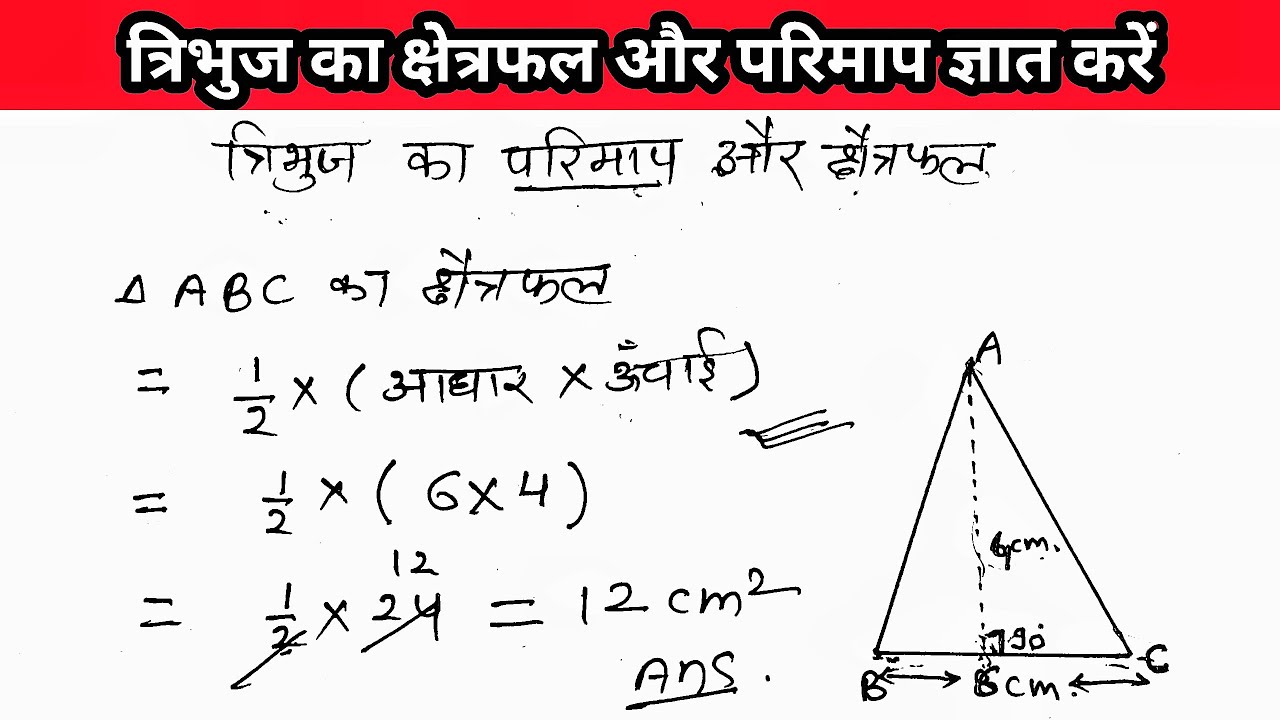 त्रिभुज का क्षेत्रफल और परिमाप ज्ञात करें
त्रिभुज का परिमाप और क्षैत्रफल
Δ ABC का क्षैत्रफल
= 1/2 × (आधार × ऊँचाई)
= 1/2 × (6×4)
12
= 1/2 × 24 = 12 cm²
Ans.
A
cm.
90°
B C
cm.